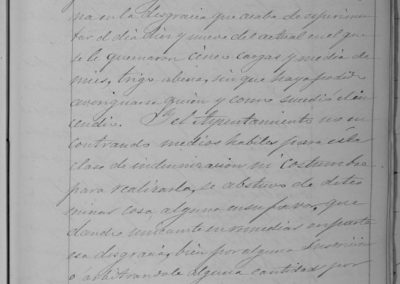 na en la desgracia que acaba de esperimen
tar el dia diez y nueve del actual en el que
se le quemaron cinco cargas y media de
mies, trigo alvar, sin que haya podido
averiguarse quien y como sucedió el in
cendio. Y el Ayuntamiento no en
contrando medios habiles para esta
clase de indemnizacion ni costumbre
para realizarla, se abstuvo de deter
minar cosa alguna en su favor, que
dando unicamente en
esa desgracia, bien por alguna
ó arbitrandole alguna cantidad por